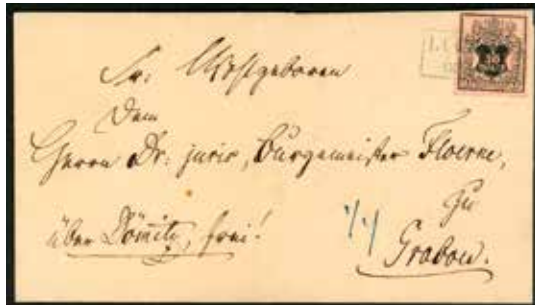 Sr. Wohlgeboren
Dem
Herrn Dr: juris, Bürgemeister Floerke,
zu
über Dömitz, frei!
1/4
Grabow.